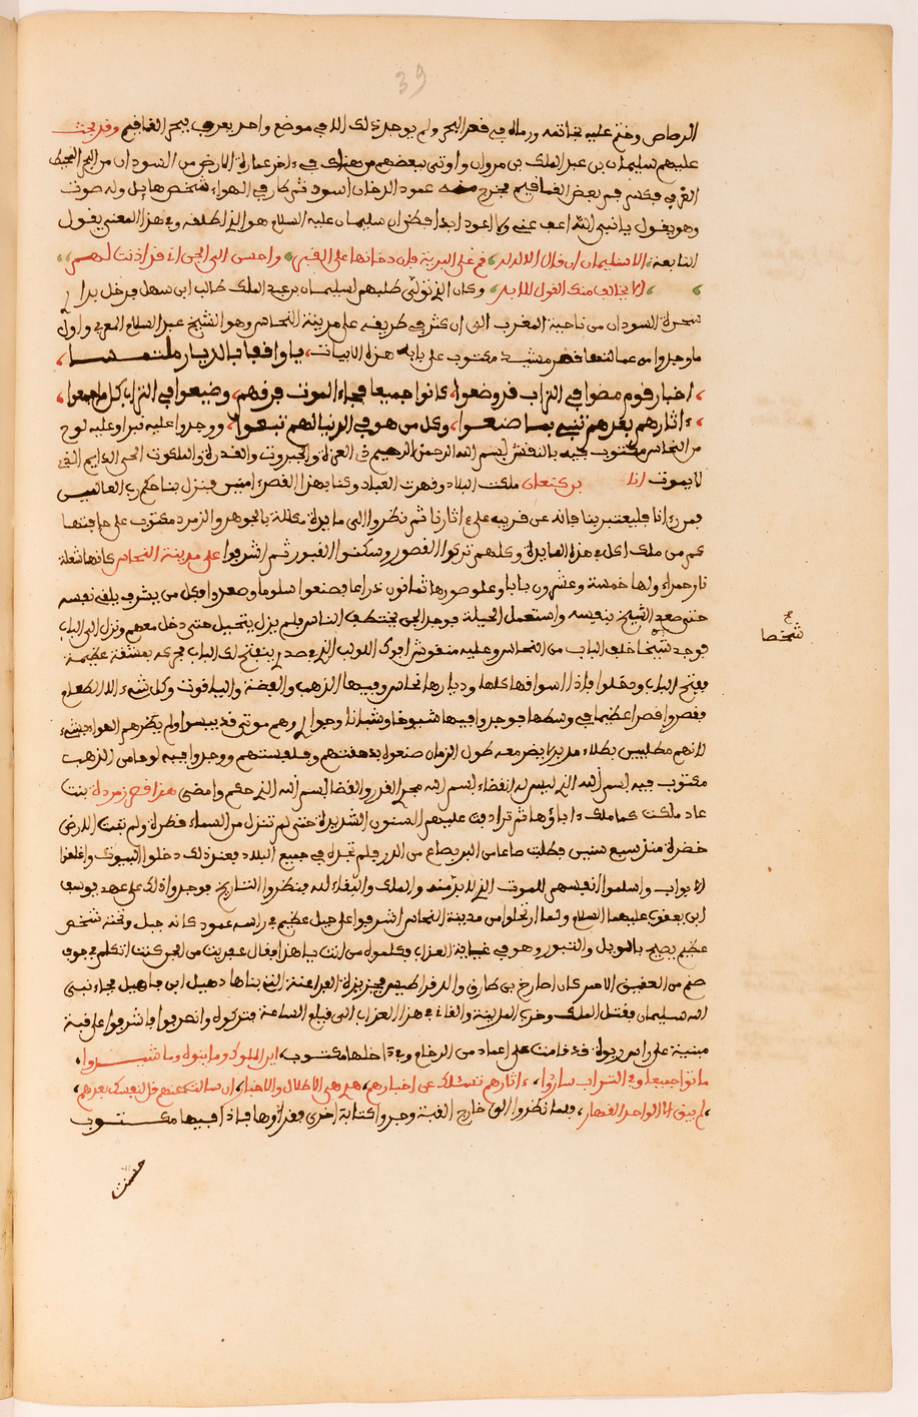 39
الرصاص وختم عليه بخاتمه ورماه في قعر البحر ولم يوجد ذلك الا في موضع واحد يعرف ببحر القماقم وقد بحث
عليهم سليمان بن عبد الملك بن مروان واوتي ببعضهم من هناك في ءاخر عمارة الارض من السودان من البحر المحيط
الغربي فكسر فم بعض القماقم فخرج منه عمود الدخان اسود ثم طار في الهواء شخص هايل وله صوت
وهو يقول يا نبي الله اعف عني ولا اعود ابدا فظن ان سليمان عليه السلام هو الذي اطلقه وفي هذا المعنى يقول
النابغة الا سليمان اذ قال الالاه له قم في البرية واحبس الجن اني قد اذنت لهم
وكان الذي تولى طلبهم لسليمان بن عبد الملك طالب ابن سهل فدخل بلاد
سحرة السودان من ناحية المغرب الى ان عثر في طريقه على مدينة النحاس وهو الشيخ عبد السلام المغربي واول
ما وجدوا من عمالتها قصر مشيد مكتوب على بابه هذه الابيات يا واقفا بالديار ملتمسا
اخبار قوم مضوا في التراب قد وضعوا كانوا جميعا فجاء الموت فرقهم وضيعوا في التراب كل ما جمعوا
ءاثارهم بعدهم تنبي بما صنعوا وكل من هو في الدنيا لهم تبع ووجدوا عليه قبرا وعليه لوح
من النحاس مكتوب فيه بالنقش بسم الله الرحمن الرحيم ذي العزة والجبروت والقدرة والملكوت الحي الدايم الذي
لا يموت انا بن كنعان ملكت البلاد وقهرت العباد وكنا بهذا القصر ءامنين فنزل بنا حكم رب العالمين
فمن رءانا فليعتبر بنا فانه عن قريب على ءاثارنا ثم نظروا الى مايدة مكللة بالجوهر والزمرد مكتوب على حافتها
كم من ملك اكل في هذه المايدة وكلهم تركوا القصور وسكنوا القبور ثم اشرفوا على مدينة النحاس كانها شعلة
نار حمراء ولها خمسة وعشرون بابا وعلو صورها ثمانون ذراعا فصنعوا سلوما وصعدوا وكل من يشرف يلقي نفسه
حتى صعد الشيخ بنفسه واستعمل الحيلة فوجد الجن يختطف الناس فلم يزل يتحيل حتى دخل معهم ونزل الى الباب
فوجد شيخا خلف الباب من النحاس وعليه منقوش افرك اللولب الذي في صدري ينفتح لك الباب ففركه بمشقة عظيمة
ففتح الباب ودخلوا فاذا اسواقها كلها وديارها نحاس وفيها الذهب والفضة والياقوت وكل شيء الا الطعام
فقصدوا قصرا عظيما في وسطها فوجدوا فيها شيوخا وشبانا وجوار وهم موتى قد يبسوا ولم يضرهم الهواء بشيء
لانهم مطليين بطلاء
مكتوب فيه بسم الله الذي ليس له انقضاء بسم الله مجري القدر والقضا بسم الله الذي حكم وامضى هذا قصر زمردة بنت
عاد ملكت كما ملك ءاباؤها ثم ترادفت عليهم السنون الشديدة حتى لم تنزل من السماء قطرة ولم تنبت الارض
خضرة منذ سبع سنين فطلبت صاعا من البر بصاع من الدر فلم تجده في جميع البلاد فعند ذلك دخلوا البيوت واغلقوا
الابواب واسلموا انفسهم للموت الذي لا بد منه والملك والبقاء لله فنظروا التاريخ فوجدوا ذلك على عهد يوسف
ابن يعقوب عليهما السلام ولما ارتحلوا من مدينة النحاس اشرفوا على جبل عظيم في راسه عمود كانه جبل وتحته شخص
عظيم يصيح بالويل والثبور وهو في غاية العذاب فكلموه من انت يا هذا فقال عفريت من الجن كنت اتكلم في جوف
صنم من العقيق الاحمر فجاء نبي
الله سليمان فقتل الملك وخرب المدينة والقاني في هذا العذاب الى قيام الساعة فتركوه وانصرفوا فاشرفوا على قبة
مبنية على راس ربوة قد قامت على اعماد من الرخام وفي داخلها مكتوب اين الملوك وما بنوه وما شيدوا
ماتوا جميعا وفي التراب ساروا ءاثارهم تنبيك عن اخبارهم هذه الاطلال والاخبار ان سالت عنهم قل لنفسك بعدهم
لم يبق الا الواحد القهار فلما نظروا الى خارج القبة وجدوا كتابة اخرى فقراوها فاذا فيها مكتوب
شخصا